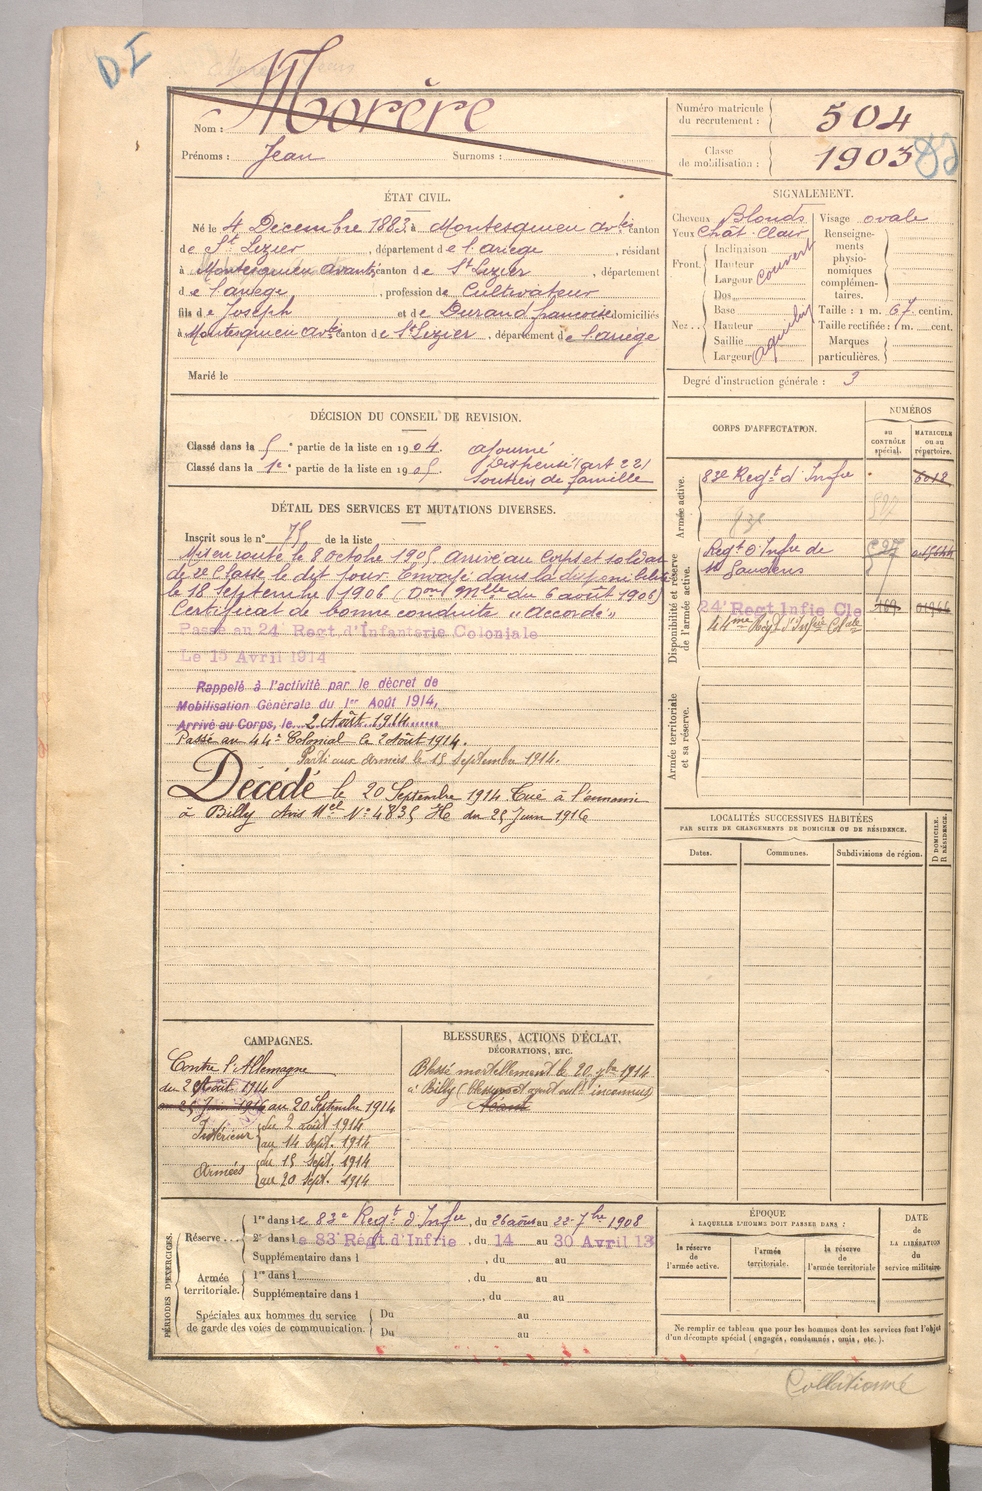 D I
Nom : Morère
Prénoms : Jean Surnoms :
Numéro matricule du recrutement : 504
Classe de mobilisation : 1903
ÉTAT CIVIL.
Né le 4 Décembre 1883, à Montesquieu Avtès canton
de St Lizier, département de l'ariege, résidant
à Montesquieu Avantès, canton de St Lizier, département
de l'ariège, profession de Cultivateur
fils de Joseph et de Durand françoise domiciliés
à Montesquieu Avtès canton de St Lizier, département de l'ariège
Marié le
SIGNALEMENT.
Cheveux Blonds
Yeux Chât. Clair
Front. Inclinaison
Hauteur
Largeur
Couvert
Nez... Dos
Base
Hauteur
Saillie
Largeur
Visage ovale
Renseignements physionomiques complémentaires.
Taille : 1 m. 67 centim.
Taille rectifiée : 1 m. cent.
Marques particulières.
Degré d'instruction générale : 3
DÉCISION DU CONSEIL DE REVISION.
Classé dans la 5e partie de la liste en 1904. ajourné
Classé dans la 1e partie de la liste en 1905. Dispensé (art 22)
Soutien de famille
DÉTAIL DES SERVICES ET MUTATIONS DIVERSES.
Inscrit sous le n° 75 de la liste
Mis en route le 8 octobre 1905 Arrivé au Corps et soldat
de 2e Classe le dit jour. Envoyé dans la disponibilité
le 18 Septembre 1906 (Don Mlle du 6 août 1906)
Certificat de bonne conduite "Accordé"
Passé au 24 Regt d'Infanterie Coloniale
Le 15 Avril 1914
Rappelé à l'activité par le décret de
Mobilisation Générale du 1er Août 1914,
Arrivé au Corps, le 2 Août 1914
Passé au 44e Colonial le 2 Août 1914.
Parti aux armées le 15 Septembre 1914.
Décédé le 20 Septembre 1914 Tué à l'ennemi
à Billy Avis Mel N° 4835 H du 25 Juin 1916
CORPS D'AFFECTATION.
NUMÉROS
au CONTRÔLE spécial.
MATRICULE ou au répertoire.
Armée active.
83e Regt d'Infie
Disponibilité et réserve de l'armée active.
Regt d'Infie de
St Gaudens
24e Regt Infie Cle 169
44me Régt d'Infie Clale
Armée territoriale et sa réserve.
LOCALITÉS SUCCESSIVES HABITÉES
PAR SUITE DE CHANGEMENTS DE DOMICILE OU DE RÉSIDENCE.
Dates. Communes. Subdivisions de région.
D DOMICILE. R RÉSIDENCE.
CAMPAGNES.
Contre l'Allemagne
du 2 Août 1914
au 25 Juin 1916 au 20 Septembre 1914
Intérieur du 2 août 1914
au 14 Sept. 1914
Armées du 15 Sept. 1914
au 20 Sept. 1914
BLESSURES, ACTIONS D'ÉCLAT,
DÉCORATIONS, ETC.
Blessé mortellement le 20 7bre 1914
à Billy
PÉRIODES D'EXERCICES.
Réserve... 1re dans le 83e Regt d'Infie, du 26 août au 22 7bre 1908
2e dans le 83 Régt d'Infrie, du 14 au 30 Avril 13
Supplémentaire dans l , du au
Armée territoriale. 1re dans l , du au
Supplémentaire dans l , du au
Spéciales aux hommes du service de garde des voies de communication. Du au
Du au
ÉPOQUE
À LAQUELLE L'HOMME DOIT PASSER DANS :
la réserve de l'armée active.
l'armée territoriale.
la réserve de l'armée territoriale
DATE de LA LIBÉRATION du service militaire.
Ne remplir ce tableau que pour les hommes dont les services font l'objet
d'un décompte spécial (engagés, condamnés, omis, etc.).
Collationné